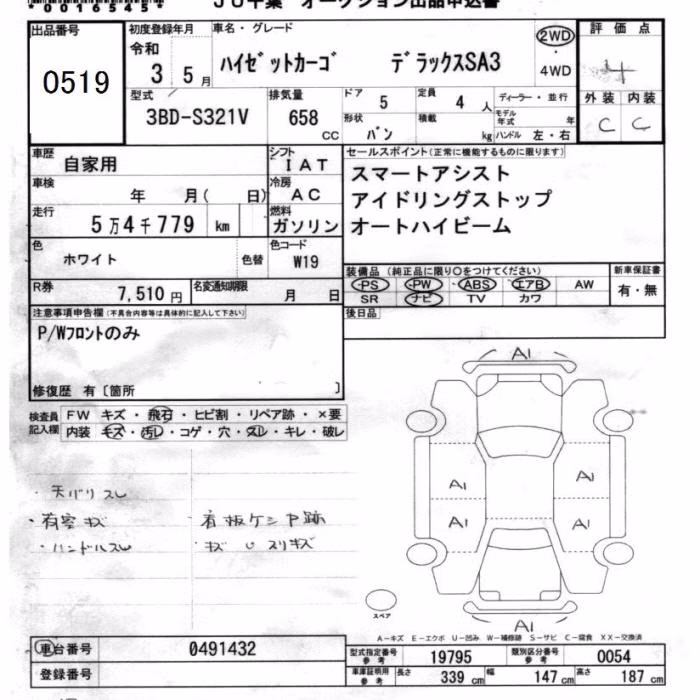 *00165450*
JU千葉 オークション出品申込書
出品番号
0519
初度登録年月
令和
3 5月
車名・グレード
ハイゼットカーゴ デラックスSA3
2WD
・
4WD
評価点
4
外装 内装
C C
型式
3BD-S321V
排気量
658
CC
ドア
5
定員
4 人
ディーラー・並行
形状
バン
積載
kg
モデル年式 年
ハンドル 左・右
車歴
自家用
シフト
IAT
車検
年 月( 日)
冷房
AC
走行
5万4千779 km
燃料
ガソリン
色
ホワイト
色替
色コード
W19
R券
7,510円
名変通知期限
月 日
セールスポイント(正常に機能するものに限ります)
スマートアシスト
アイドリングストップ
オートハイビーム
装備品(純正品に限り○をつけてください)
PS PW ABS エアB AW
SR ナビ TV カワ
新車保証書
有・無
後日品
注意事項申告欄(不具合内容等は具体的に記入して下さい)
P/Wフロントのみ
修復歴 有〔箇所 〕
検査員記入欄
FW キズ・飛石・ヒビ割・リペア跡・×要
内装 キズ・汚レ・コゲ・穴・スレ・キレ・破レ
・天バリスレ
・荷室キズ
・ハンドルスレ
・看板ケシP跡
キズ U スリキズ
A1
A1
A1
A1
A1
A1
スペア
A-キズ E-エクボ U-凹み W-補修跡 S-サビ C-腐食 XX-交換済
車台番号
0491432
登録番号
型式指定番号
参考
19795
類別区分番号
参考
0054
車庫証明用
参考
長さ
339 cm
幅
147 cm
高さ
187 cm